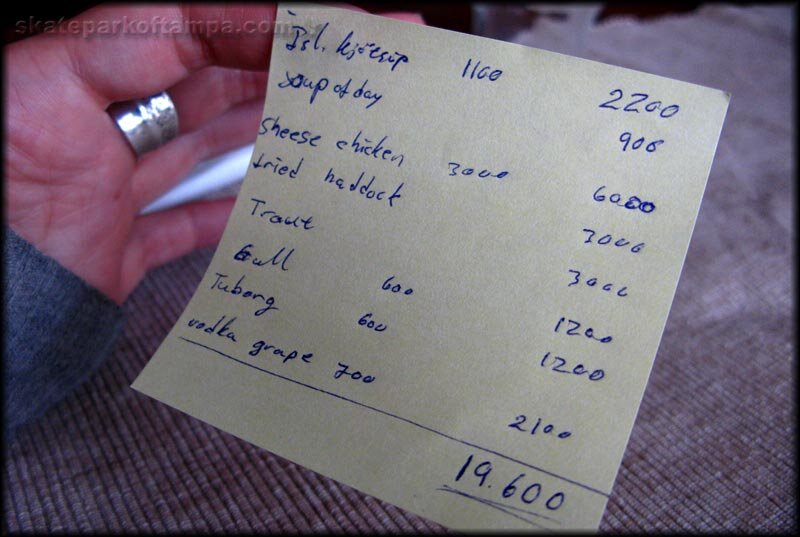 skateparkoftampa.com
Ísl. kjötsúp 1100 2200
Soup of day 900
Sheese chicken 3000 6000
fried haddock 3000
Traut 3000
Gull 600 1200
Tuborg 600 1200
vodka grape 700 2100
19.600